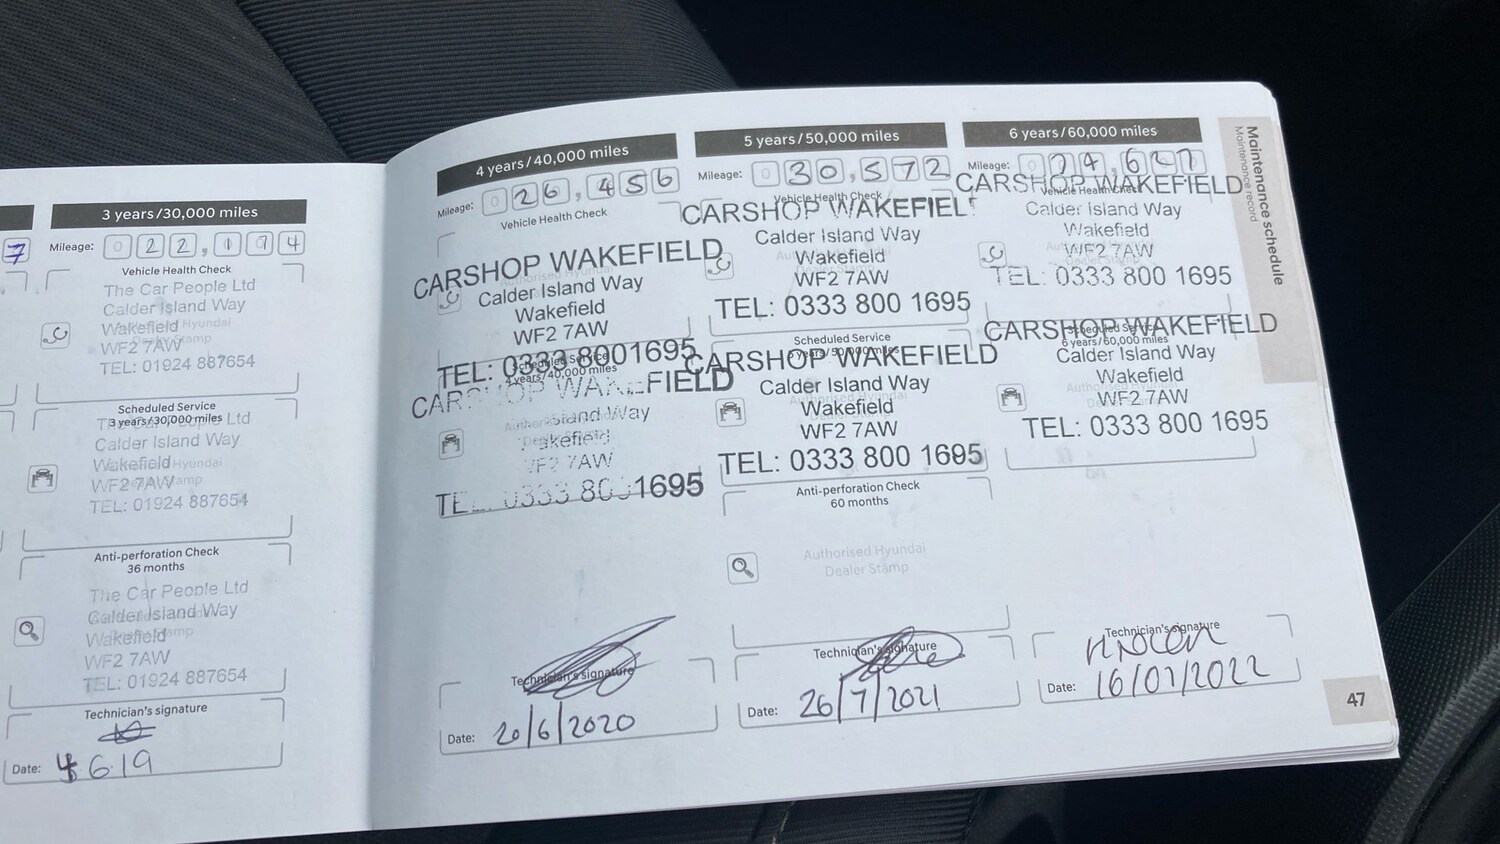 7
3 years/30,000 miles
Mileage: 022,174
Vehicle Health Check
The Car People Ltd
Calder Island Way
Wakefield
WF2 7AW
TEL: 01924 887654
Scheduled Service
3 years/30,000 miles
The Car People Ltd
Calder Island Way
Wakefield
WF2 7AW
TEL: 01924 887654
Anti-perforation Check
36 months
The Car People Ltd
Calder Island Way
Wakefield
WF2 7AW
TEL: 01924 887654
Technician's signature
Date: 4 6 19
4 years/40,000 miles
Mileage: 026,456
Vehicle Health Check
CARSHOP WAKEFIELD
Calder Island Way
Wakefield
WF2 7AW
TEL: 0333 8001695
Scheduled Service
4 years/40,000 miles
CARSHOP WAKEFIELD
Island Way
Wakefield
WF2 7AW
TEL: 0333 800 1695
Technician's signature
Date: 20/6/2020
5 years/50,000 miles
Mileage: 030,572
Vehicle Health Check
CARSHOP WAKEFIELD
Calder Island Way
Wakefield
WF2 7AW
TEL: 0333 800 1695
Scheduled Service
5 years/50,000 miles
CARSHOP WAKEFIELD
Calder Island Way
Wakefield
WF2 7AW
TEL: 0333 800 1695
Anti-perforation Check
60 months
Authorised Hyundai
Dealer Stamp
Technician's signature
Date: 26/7/2021
6 years/60,000 miles
Mileage:
Vehicle Health Check
CARSHOP WAKEFIELD
Calder Island Way
Wakefield
WF2 7AW
TEL: 0333 800 1695
Scheduled Service
6 years/60,000 miles
CARSHOP WAKEFIELD
Calder Island Way
Wakefield
WF2 7AW
TEL: 0333 800 1695
Technician's signature
Date: 16/07/2022
Maintenance schedule
Maintenance record
47